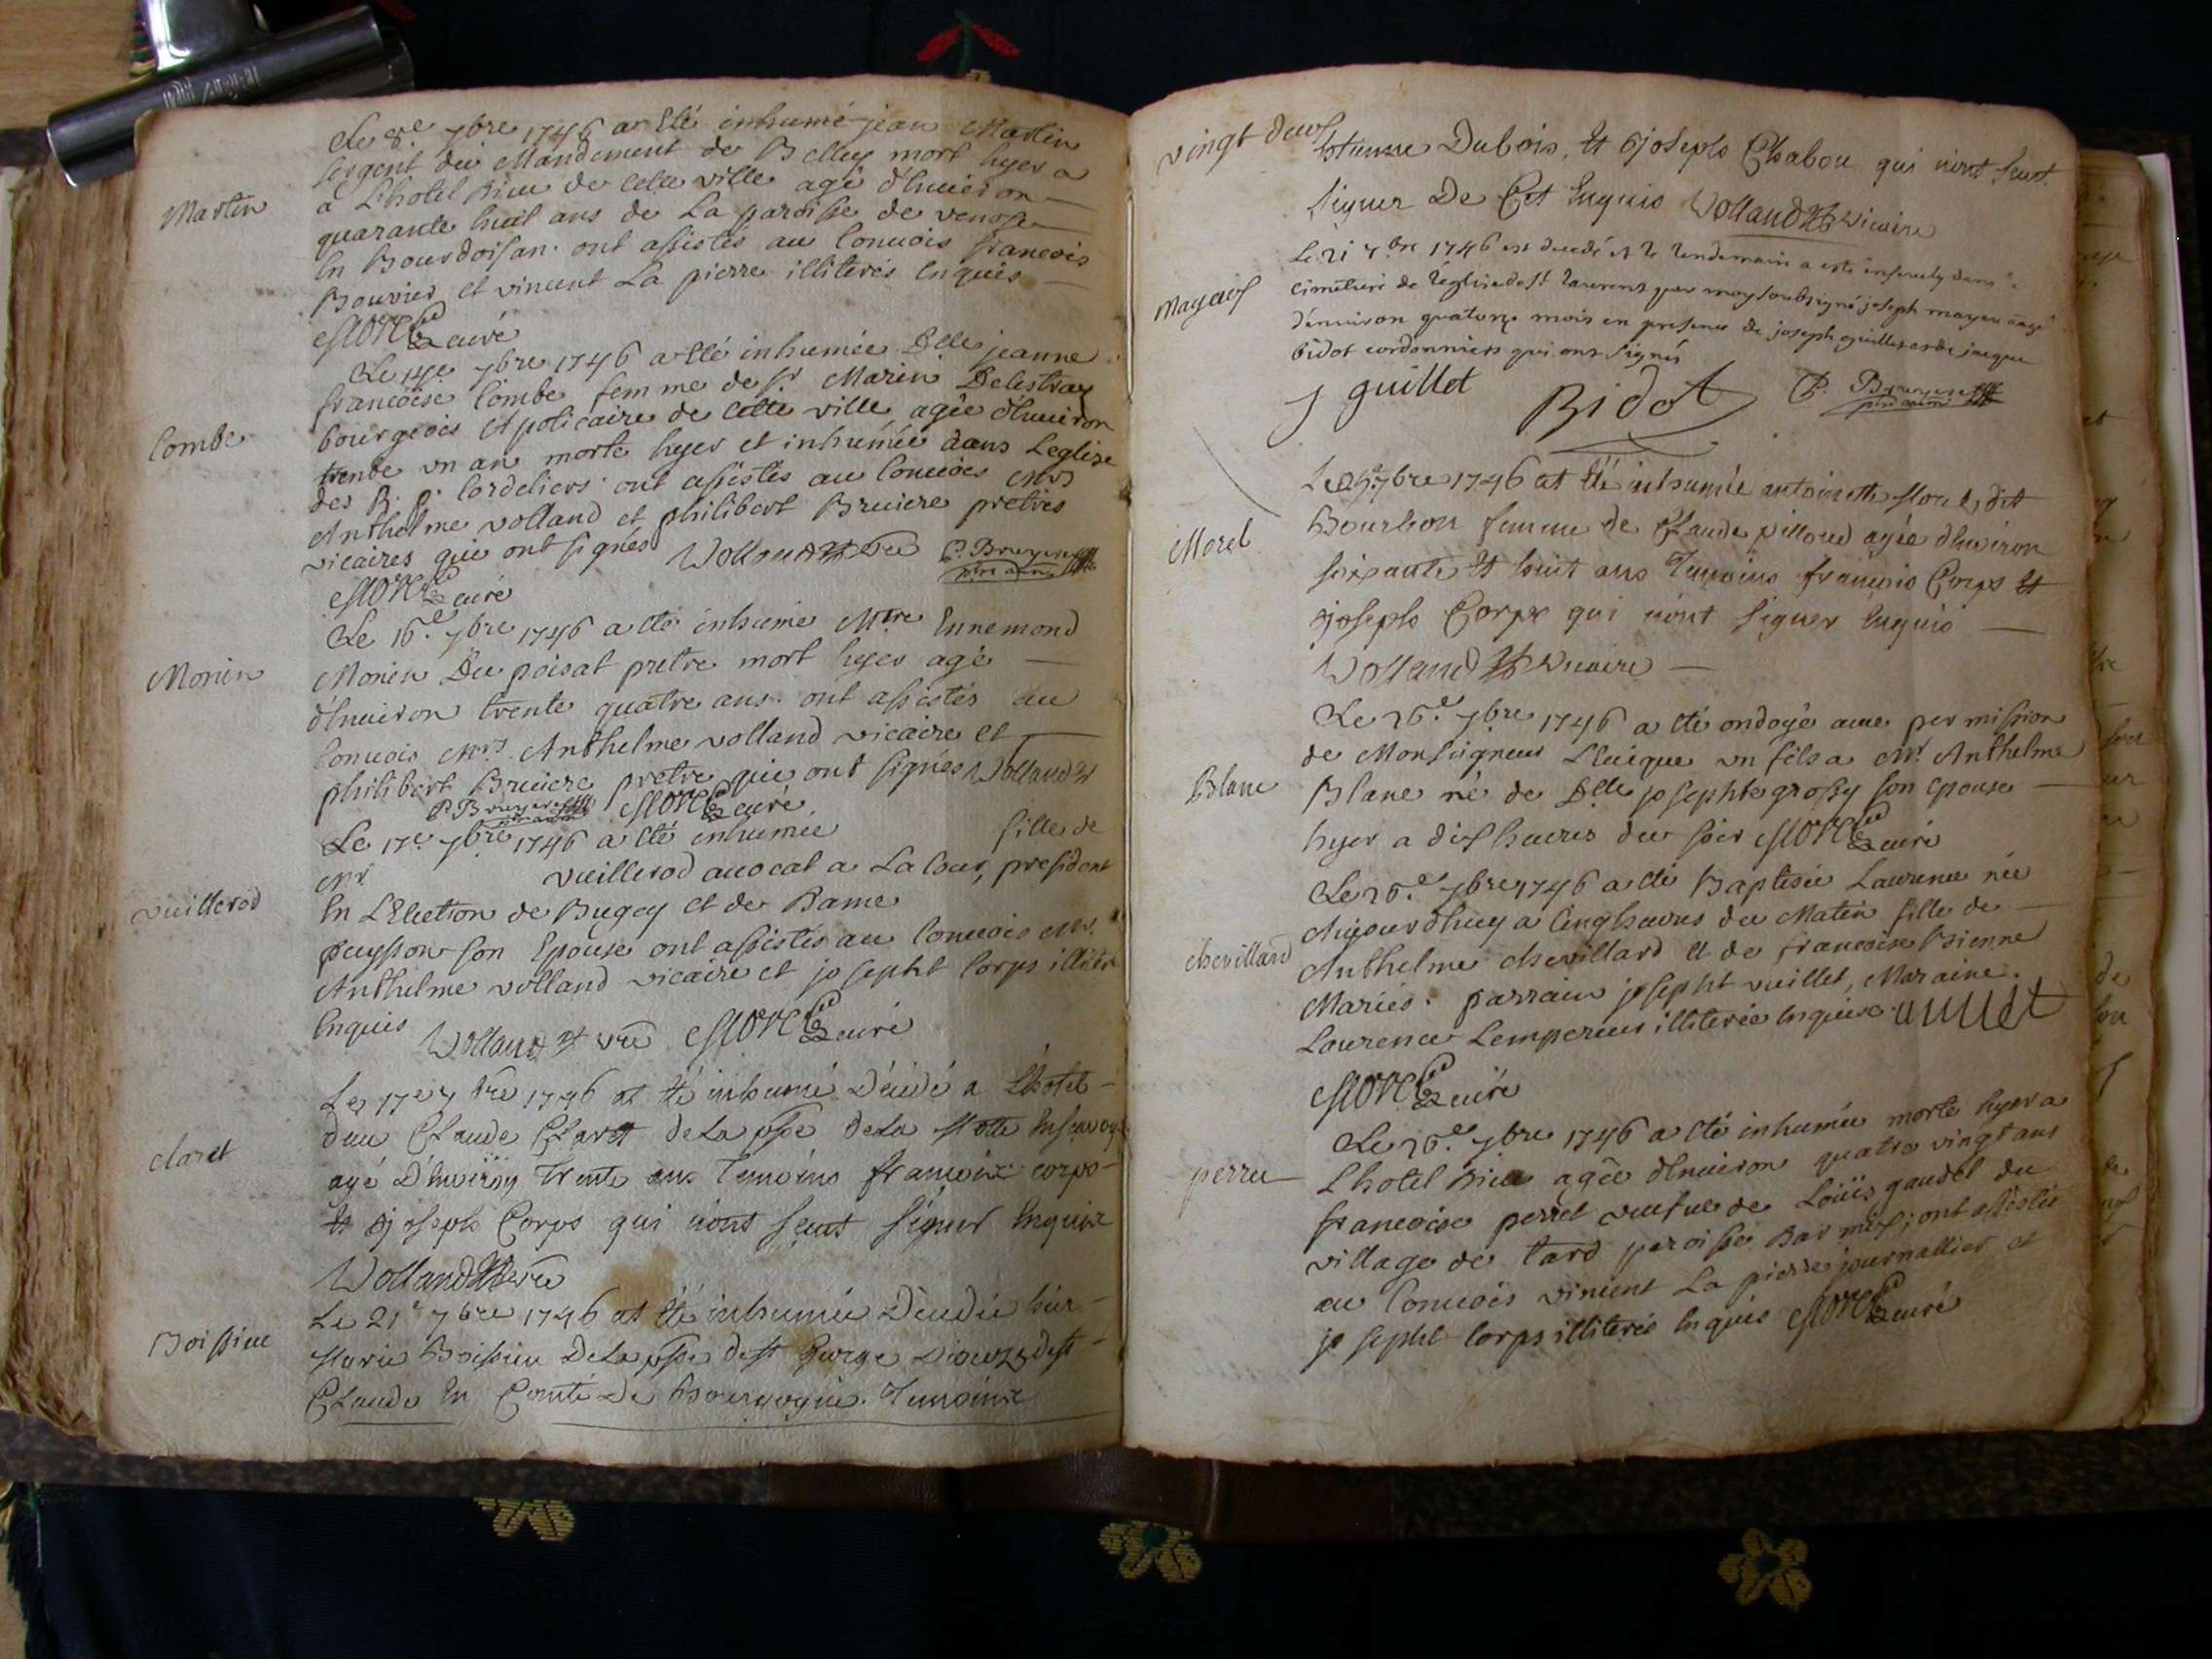 Martin
Le 8.e 7bre 1746 a Eté inhumé jean Martin
sergent du Mandement de Belley mort hyer a
a L'hotel Dieu de cette ville agé d'Enuiron
quarante huit ans de La paroisse de venose
En Bourdoisan. ont assistés au Conuois francois
Bouvier et vincent La pierre illiterés Enquis
curé
Combe
Le 14e 7bre 1746 a Eté inhumée Delle jeanne
francoise Combe femme de Sr Marin Delestraz
bourgeois Apoticaire de cette ville agée d'Enuiron
trente un an morte hyer et inhumée dans Leglise
des R. P. Cordeliers. ont assistés au Conuois Mrs
Anthelme volland et philibert Bruiere pretres
vicaires qui ont signés Volland P. Bruyere
curé
Monin
Le 16.e 7bre 1746 a eté inhumé Mtre Ennemond
Monin Du poisat pretre mort hyer agé
d'Enuiron trente quatre ans. ont assistés au
Conuois Mrs. Anthelme volland vicaire et
philibert Bruiere pretre qui ont signés Volland
P. Bruyere curé
Le 17e. 7bre 1746 a eté inhumée fille de
Vuillerod
Mr. vuillerod auocat a La Cour, president
En L'Election de Bugey et de Dame
puysson son Epouse ont assistés au Conuois Mr.
Anthelme volland vicaire et josepht Corps illitere
Enquis Volland vre curé
Claret
Le 17e 7bre 1746 at été inhumé Décédé a L'hotel
dieu Claude Claret de La psse de La Motte En Savoye
agé D'Enuiron trente ans Temoins francoix corps
Et joseph Corps qui n'ont sçeut signer Enquix
Volland vre
Boissieu
Le 21e 7bre 1746 at été inhumée Décédée hier
Marie Boissieu De La psse de St George Diocez de St
Claude En Comté De Bourgogne. Temoinx
vingt deux
Etienne Dubois, Et joseph Chabou qui n'ont sçeut
signer De Cet Enquis Volland vicaire
Mayeux
Le 21 7bre 1746 est decedé et le lendemain a esté ensevely dans le
cimetiere de l'eglise de St laurent par moy soubsigné joseph mayeu aagé
d'enuiron quatorze mois en presence de joseph guillet et de jacque
bidot cordonniers qui ont signés
j guillet Bidot P. Bruyere
Morel
7bre 1746 at Eté inhumée antoinette Morel, dit
Bourbon femme de Claude villoud agée d'Enuiron
soixante Et huit ans Temoins francois Corps Et
joseph Corps qui n'ont signer Enquis
Volland vicaire
Blanc
Le 26.e 7bre 1746 a eté ondoyé auec permission
de Monseigneur L'Euêque un fils a Mr. Anthelme
Blanc né de Delle josephte grossy son epouse
hyer a dix heures du soir curé
chevillard
Le 26.e 7bre 1746 a eté Baptisée Laurence née
Aujourdhuy a Cinq heures du Matin fille de
Anthelme chevillard et de francoise Bienne
Mariés. parrain josepht vuillet, Maraine.
Laurence Lempereur illiterée Enquise. vuillet
curé
perret
Le 26.e 7bre 1746 a eté inhumée morte hyer a
L'hotel Dieu agée d'Enuiron quatre vingt ans
francoise perret veufue de Loüis gaudet du
village de Lard paroisse ont assistés
au Conuois vincent La pierre journallier et
josepht Corps illiterés Enquis curé